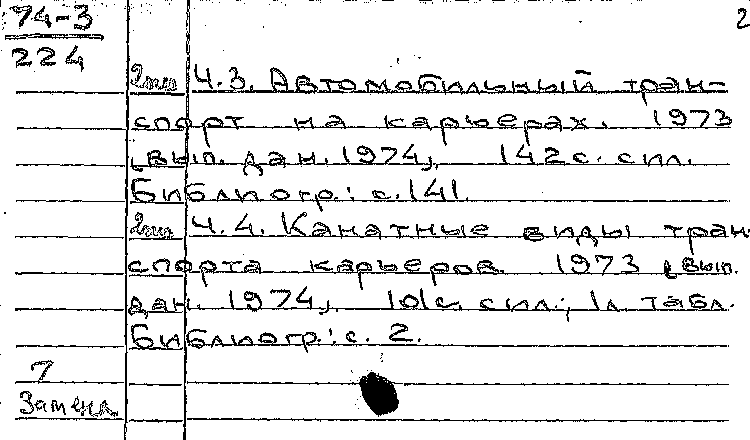 74-3
2
224
2пп Ч.3. Автомобильный тран-
спорт на карьерах. 1973
[вып. дан. 1974], 142 с. с ил.
Библиогр.: с. 141.
2пп Ч.4. Канатные виды тран-
спорта карьеров 1973 [вып.
дан. 1974], 101 с. с ил.; 1 л. табл.
Библиогр.: с. 2.
7
Замена